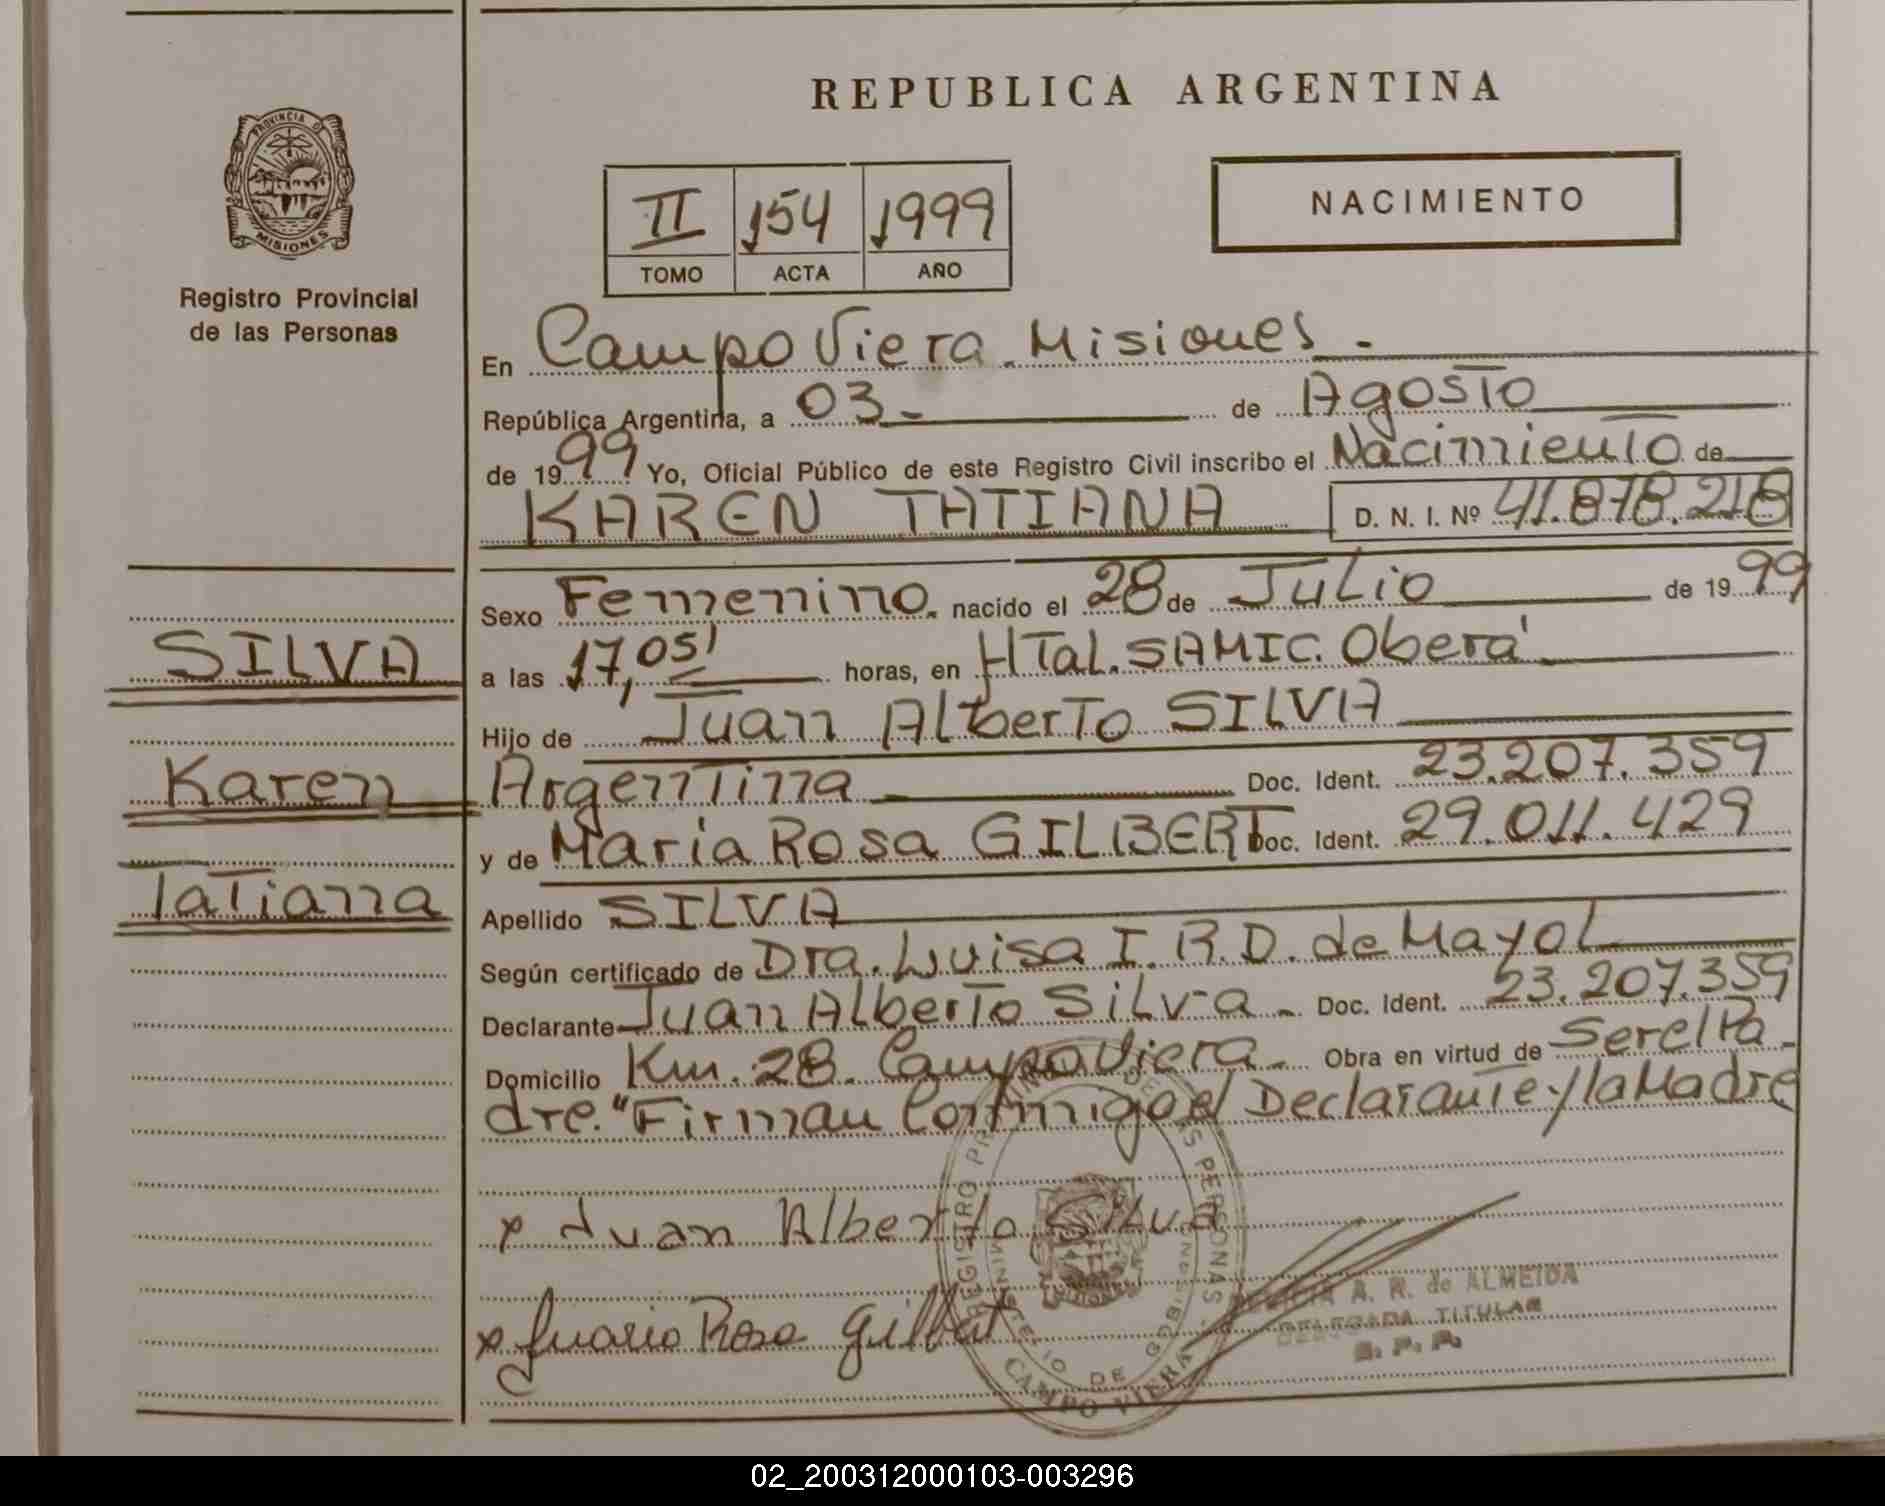 REPUBLICA ARGENTINA
PROVINCIA DE
MISIONES
Registro Provincial
de las Personas
II 154 1999
TOMO ACTA AÑO
NACIMIENTO
En Campo Viera - Misiones -
República Argentina, a 03 - de Agosto
de 1999 Yo, Oficial Público de este Registro Civil inscribo el Nacimiento de
KAREN TATIANA D. N. I. Nº 41.878.218
Sexo Femenino. nacido el 28 de Julio de 1999
SILVA
a las 17,05' horas, en HTal. SAMIC. Oberá
Hijo de Juan Alberto SILVA
Karen
Argentina Doc. Ident. 23.207.359
y de María Rosa GILBERT Doc. Ident. 29.011.429
Tatiana
Apellido SILVA
Según certificado de Dra. Luisa I. R. D. de Mayol
Declarante Juan Alberto Silva - Doc. Ident. 23.207.359
Domicilio Km. 28. Campo Viera - Obra en virtud de Ser el Pa-
dre. "Firman Conmigo el Declarante y la Madre
x Juan Alberto Silva
x María Rosa Gilbert
REGISTRO PROVINCIAL DE LAS PERSONAS
MINISTERIO DE GOBIERNO
CAMPO VIERA
A. R. de ALMEIDA
DELEGADA TITULAR
R. P. P.
02_200312000103-003296